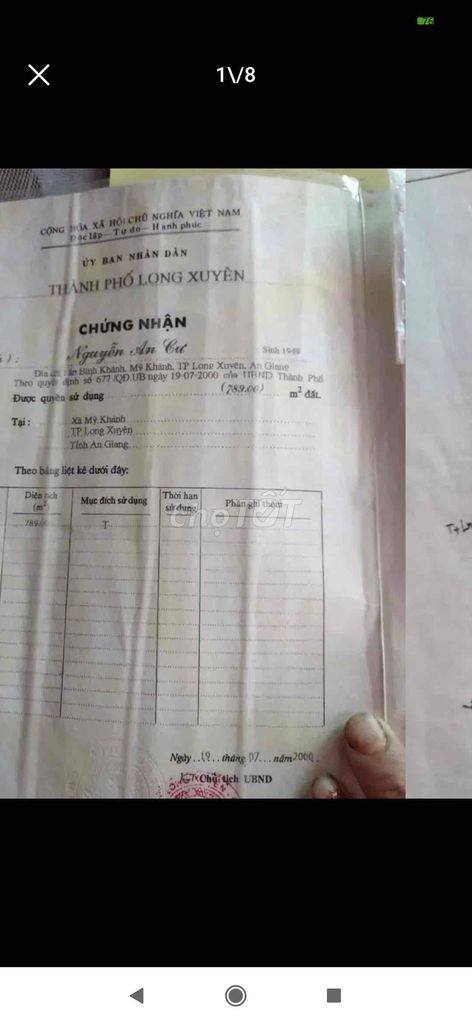 76
1\/8
CỘNG HÒA XÃ HỘI CHỦ NGHĨA VIỆT NAM
Độc lập - Tự do - Hạnh phúc
ỦY BAN NHÂN DÂN
THÀNH PHỐ LONG XUYÊN
CHỨNG NHẬN
) : Nguyễn An Cư Sinh 1949
Địa chỉ : ấn Bình Khánh, Mỹ Khánh, TP Long Xuyên, An Giang
Theo quyết định số 677/QĐ.UB ngày 19-07-2000 của UBND Thành Phố
Được quyền sử dụng (789.00) m² đất.
Tại : Xã Mỹ Khánh
TP Long Xuyên
Tỉnh An Giang
Theo bảng liệt kê dưới đây:
Diện tích (m²) Mục đích sử dụng Thời hạn sử dụng Phần ghi thêm
789.00 T
chợTỐT
Ngày..19..tháng.07...năm2000.
KT Chủ tịch UBND